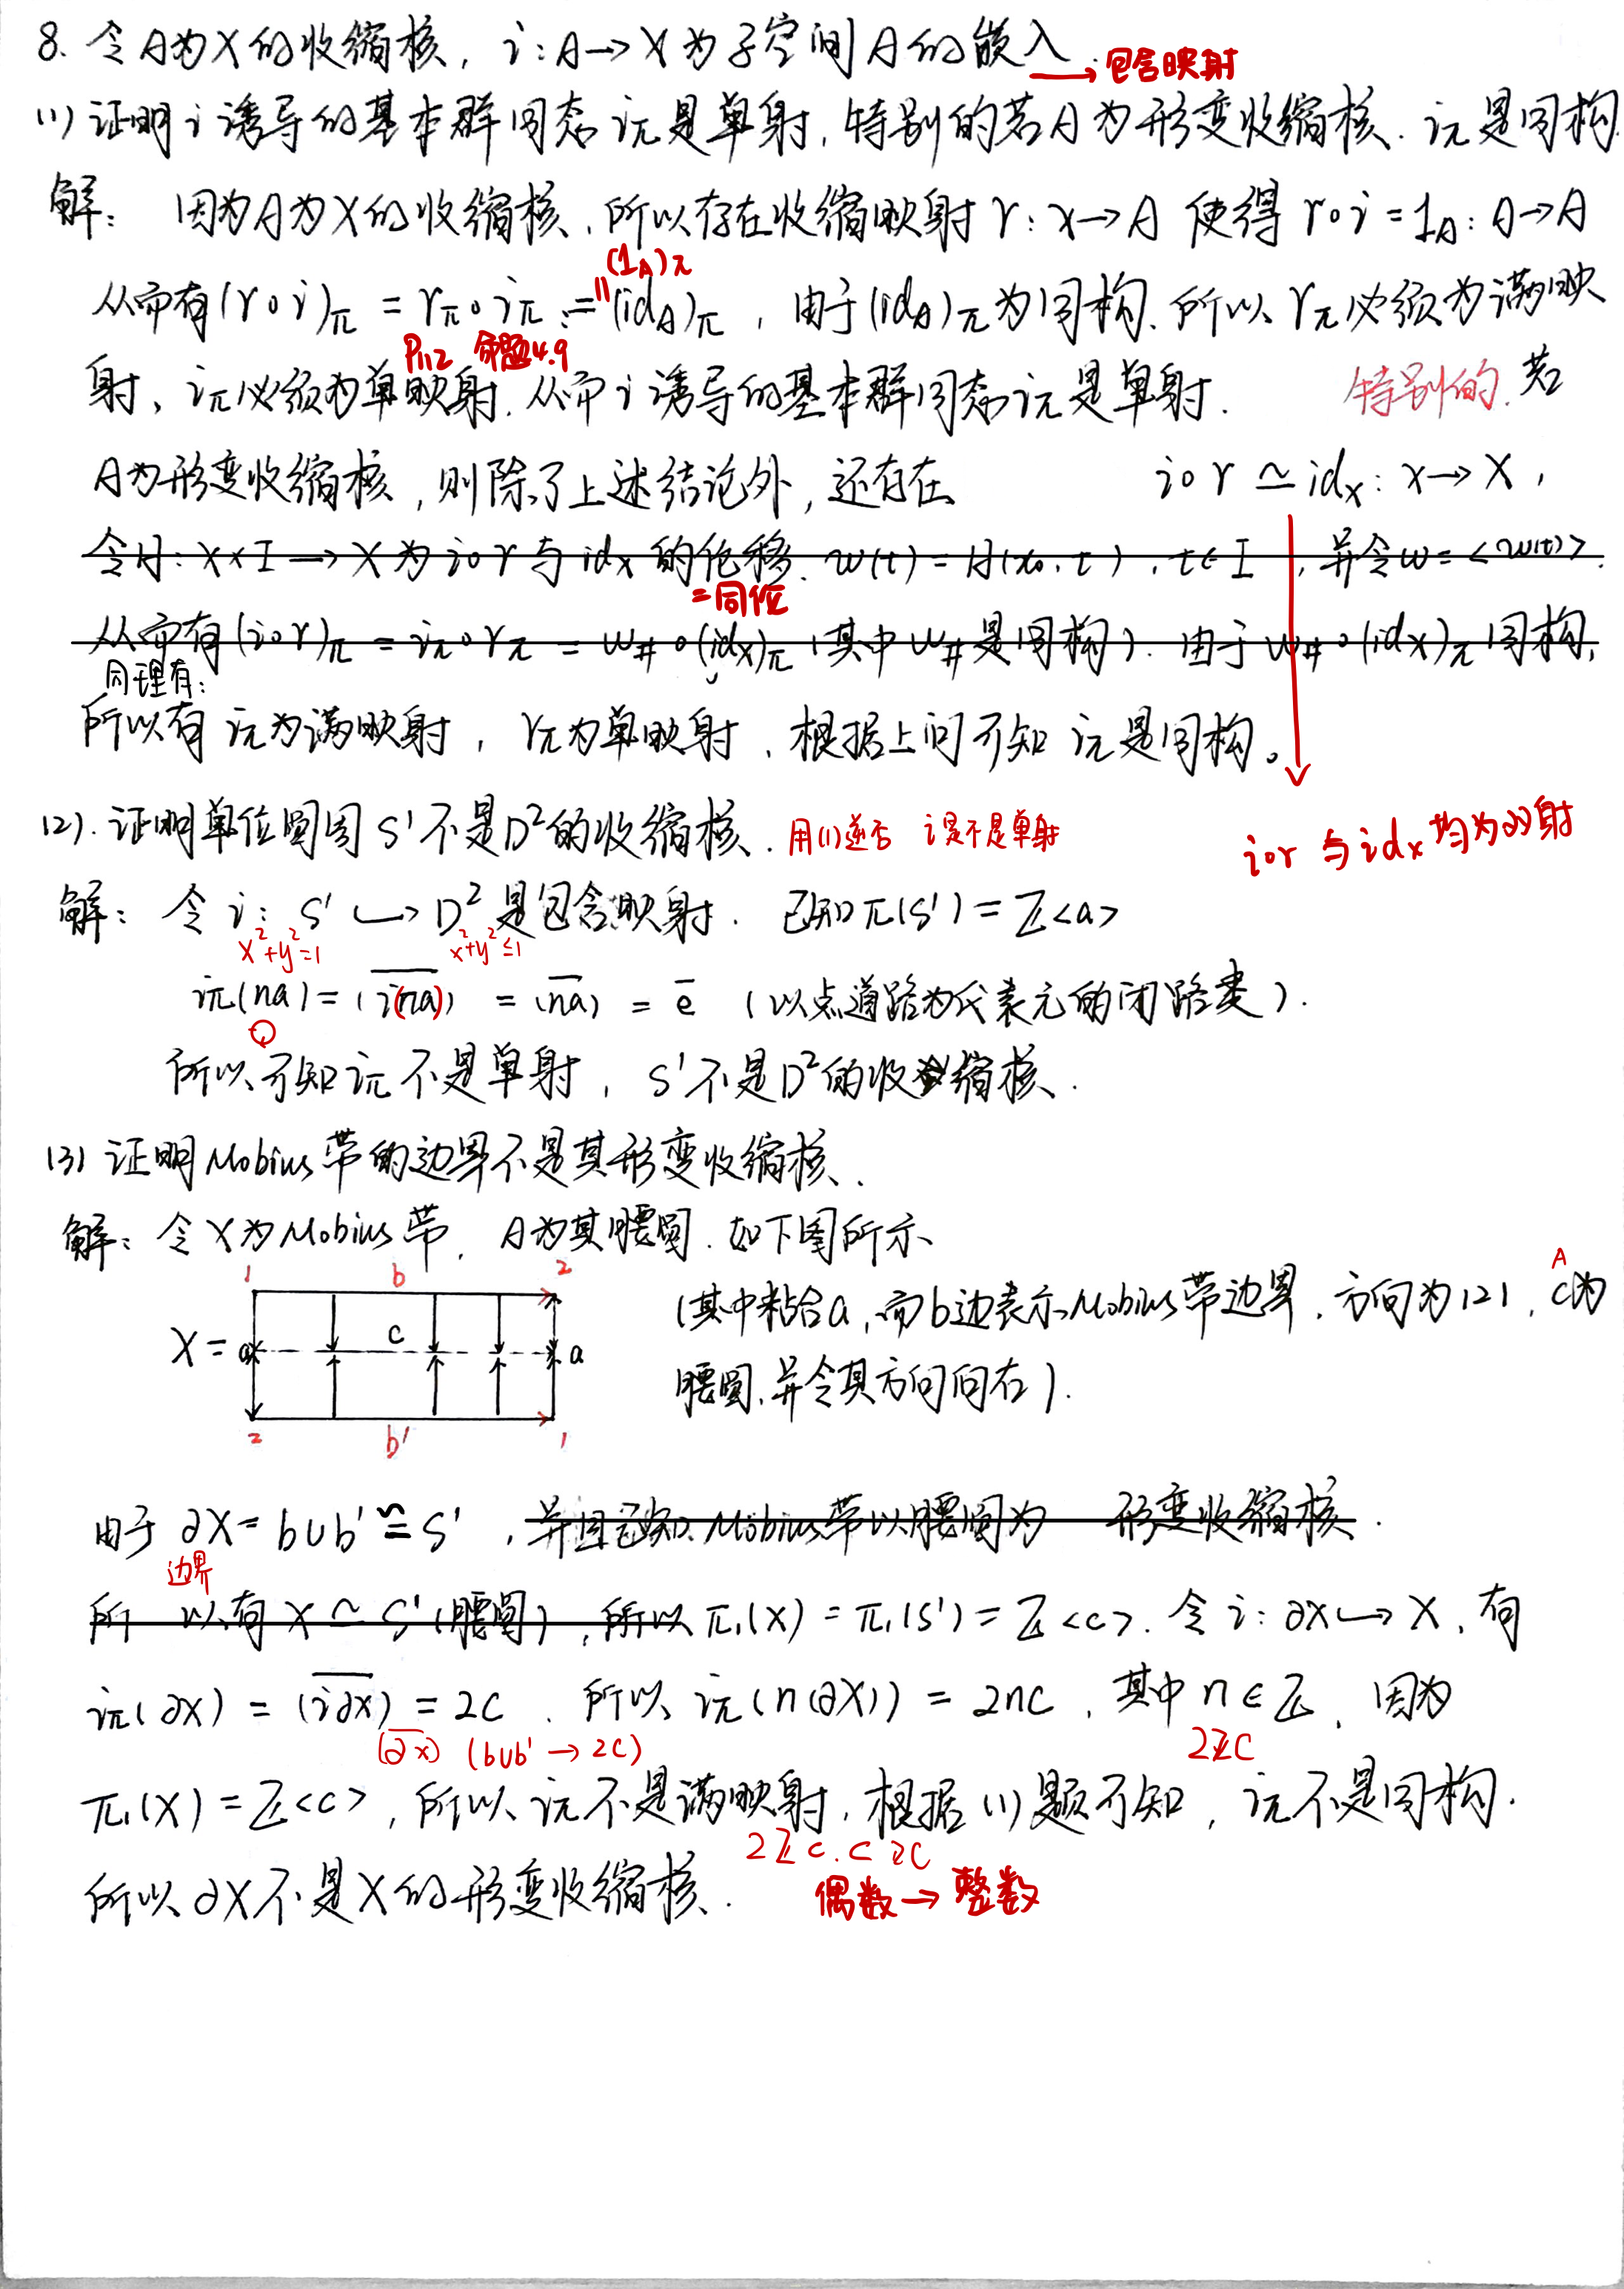 8. 令A为X的收缩核, i: A→X 为子空间A的嵌入. → 包含映射
(1) 证明 i 诱导的基本群同态 iπ是单射, 特别的若A为形变收缩核. iπ是同构.
解: 因为A为X的收缩核, 所以存在收缩映射 r: X→A 使得 r∘i = 1_A: A→A
(1_A)π
从而有(r∘i)π = rπ∘iπ = (id_A)π , 由于(id_A)π为同构. 所以 rπ必须为满映
P112 命题4.9
射, iπ必须为单映射. 从而 i 诱导的基本群同态iπ是单射. 特别的. 若
A为形变收缩核, 则除了上述结论外, 还存在 i∘r ≃ id_X: X→X ,
令H: X×I → X 为 i∘r 与 id_X 的伦移. w(t) = H(x₀, t) , t∈I , 并令 w = <w(t)>.
= 同伦
从而有(i∘r)π = iπ∘rπ = w# ∘(id_X)π (其中 w# 是同构). 由于 w#∘(id_X)π同构,
同理有:
所以有 iπ为满映射 , rπ为单映射 , 根据上问可知 iπ是同构。
i∘r 与 id_X 均为双射
(2). 证明单位圆周 S¹ 不是D²的收缩核. 用(1)逆否 i是不是单射
解: 令 i: S¹ ↪ D² 是包含映射. 已知π(S¹) = Z<a>
x²+y²=1 x²+y²≤1
iπ(na) = (i(na)) = (na) = e (以点道路为代表元的闭路类).
所以可知iπ不是单射, S¹不是D²的收缩核.
(3) 证明Mobius带的边界不是其形变收缩核.
解: 令X为Mobius带, A为其腰圆. 如下图所示
1 b 2
(其中粘合a, 而b边表示Mobius带边界. 方向为121, c为
A
X= a c a
腰圆, 并令其方向向右).
2 b' 1
由于 ∂X = b∪b' ≅ S¹ , 并且已知 Mobius带以腰圆为 形变收缩核.
边界
所 以有 X ~ S¹(腰圆), 所以 π₁(X) = π₁(S¹) = Z<c>. 令 i: ∂X ↪ X, 有
iπ(∂X) = (i∂X) = 2c . 所以 iπ(n(∂X)) = 2nc , 其中 n∈Z, 因为
(∂X) (b∪b' → 2c) 2Zc
π₁(X) = Z<c> , 所以 iπ不是满映射, 根据(1)题可知, iπ不是同构.
2Zc ⊂ Zc
所以∂X不是X的形变收缩核. 偶数 → 整数